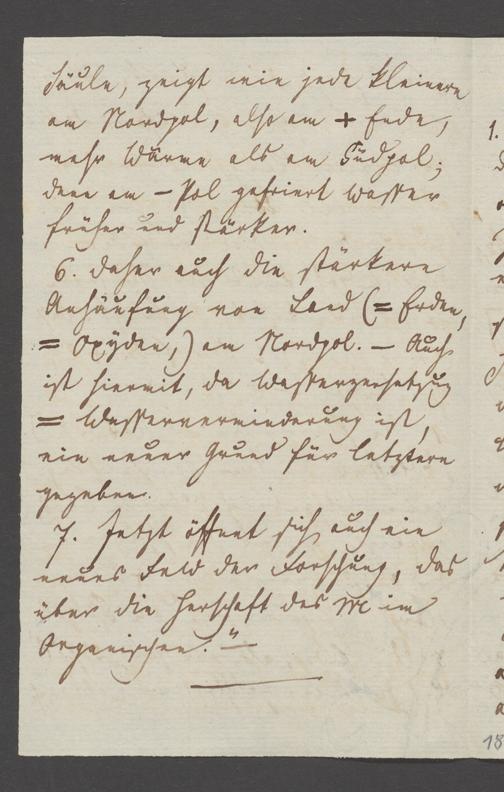 Säule, zeigt wie jede kleinere
am Nordpol, also am + Ende,
mehr Wärme als am Südpol;
denn am – Pol gefriert Wasser
früher und stärker.
6. Daher auch die stärkere
Anhäufung von Land (= Erden,
= Oxyden,) am Nordpol. – Auch
ist hiermit, da Wasserzersetzung
= Wasserverminderung ist,
ein neuer Grund für letztere
gegeben.
7. Jetzt öffnet sich auch ein
neues Feld der Forschung, das
über die Herschaft des M im
Organischen." –
1.
18